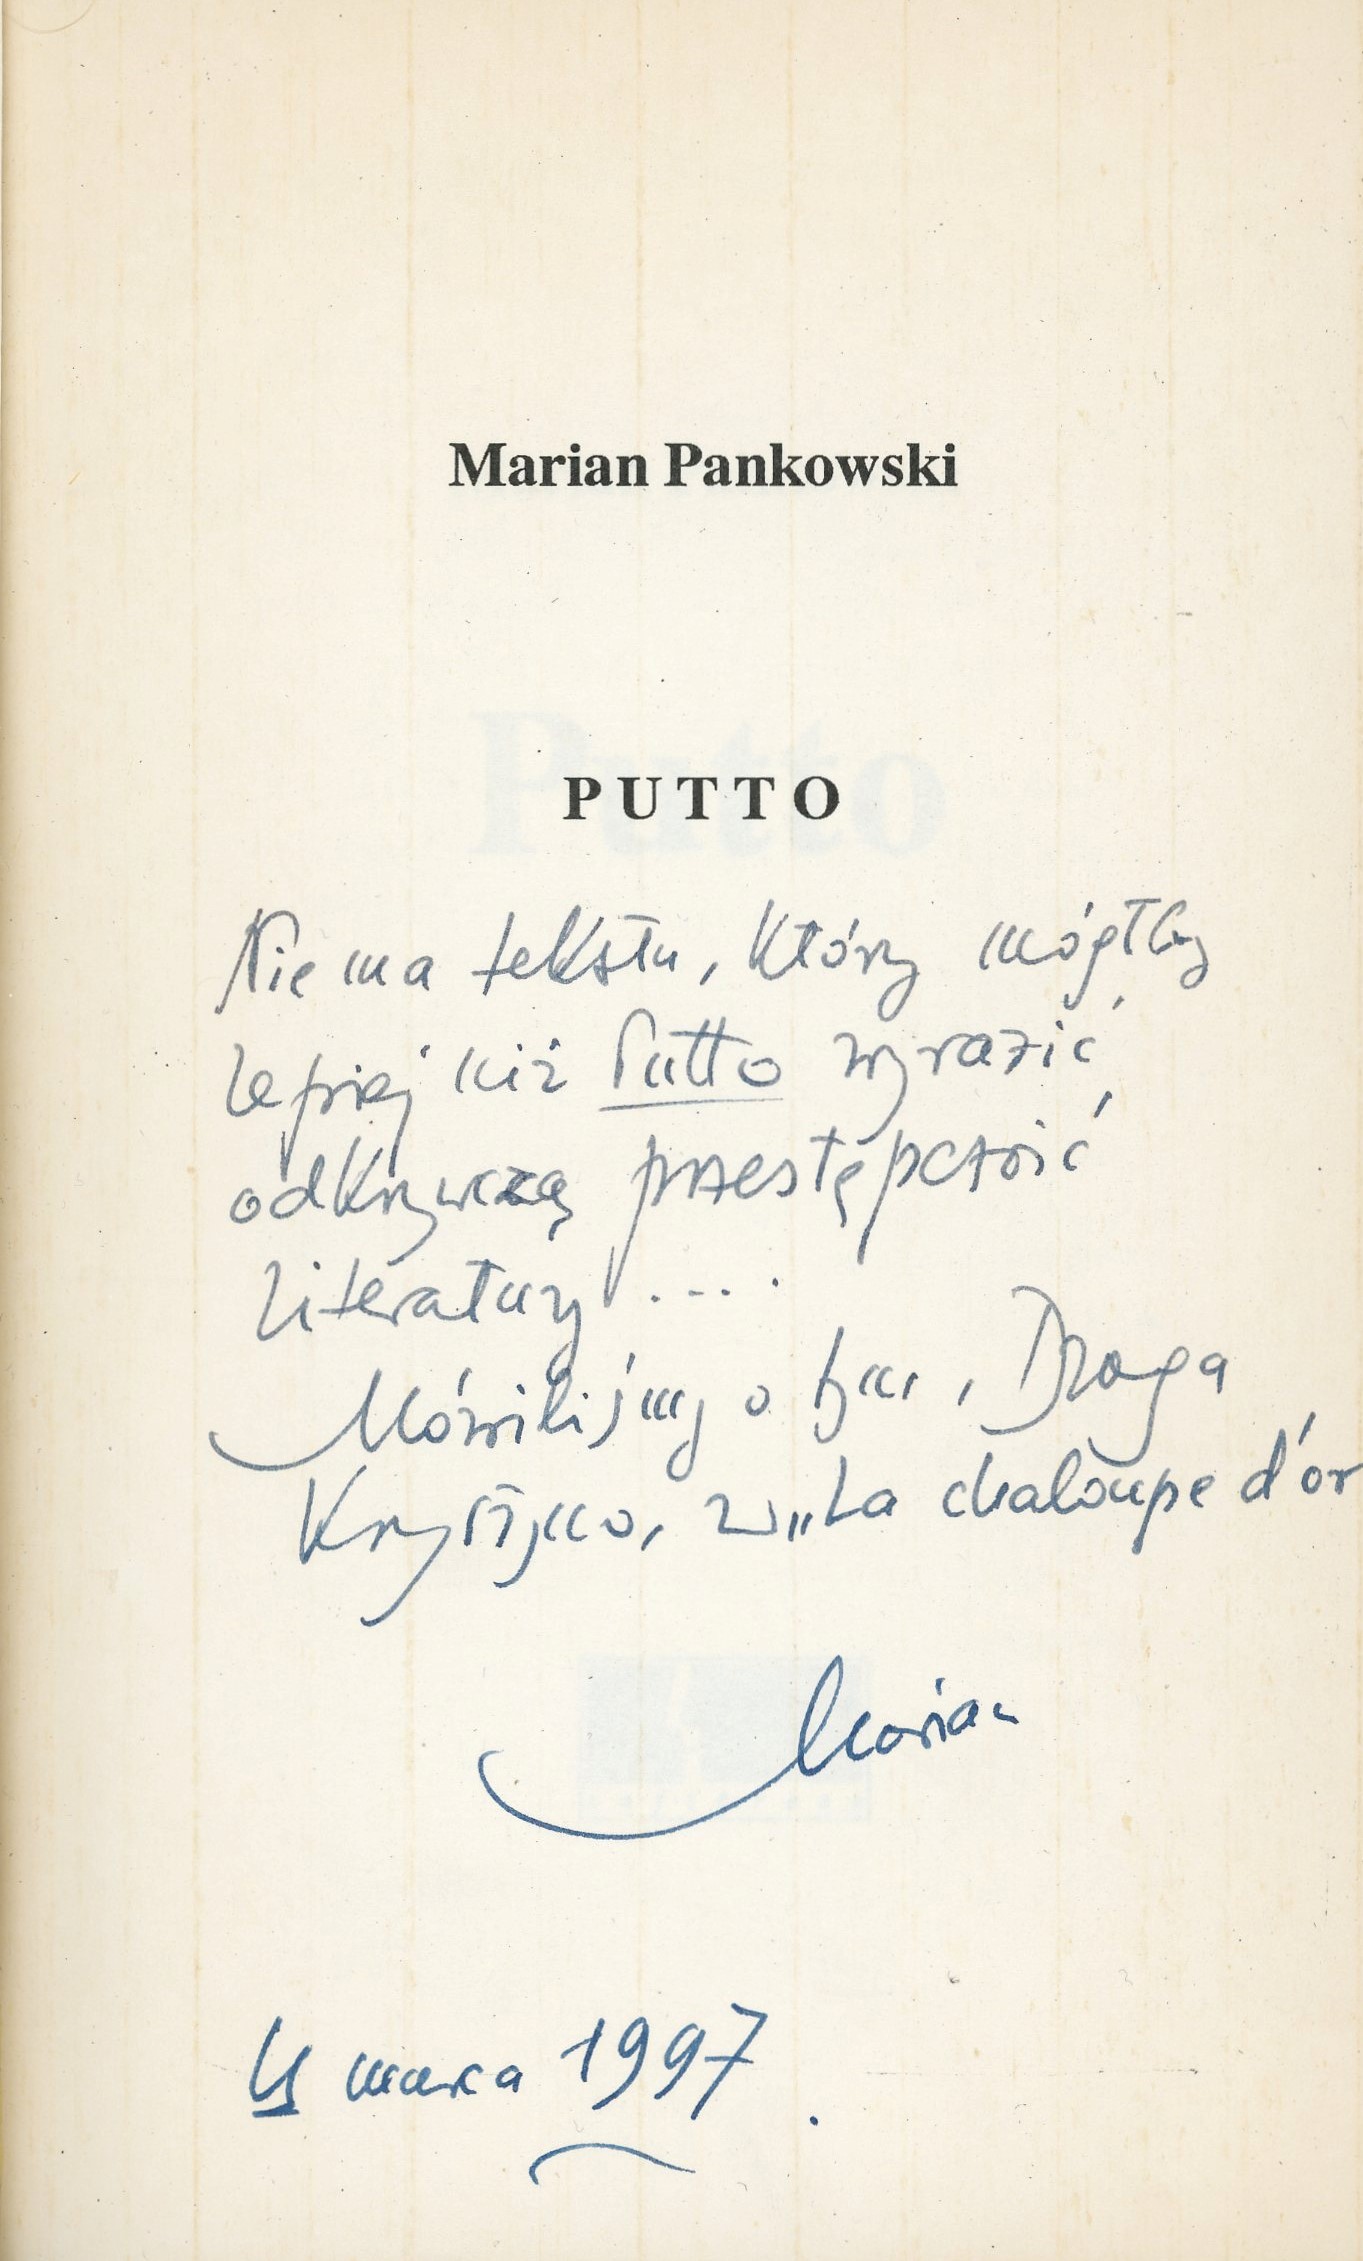 Marian Pankowski
PUTTO
Nie ma tekstu, który mógłby
lepiej niż Putto wyrazić
odkrywczą przestępczość
literatury ....
Mówiliśmy o tym, Droga
Krystyno, w „La chaloupe d'or
Marian
marca 1997.